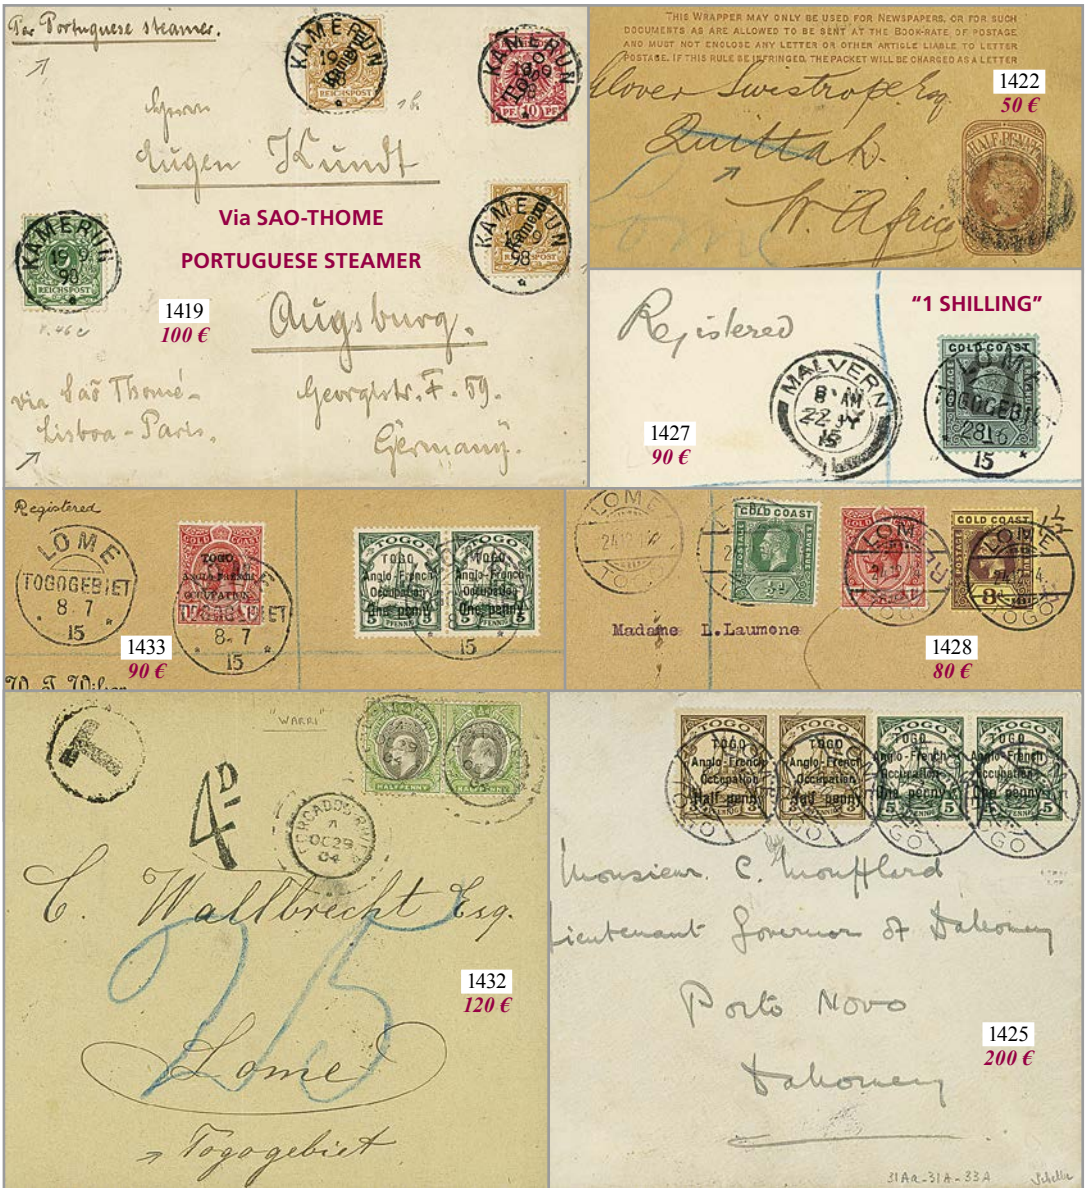 Per Portuguese steamer.
KAMERUN
19 9
98
REICHSPOST
KAMERUN
10 PF
Herrn
Eugen Kundt
Via SAO-THOME
PORTUGUESE STEAMER
KAMERUN
19 9
98
REICHSPOST
KAMERUN
98
REICHSPOST
1419
100 €
Augsburg.
via Saō Thomé-
Lisboa - Paris.
Georgstr. F. 59.
Germany.
THIS WRAPPER MAY ONLY BE USED FOR NEWSPAPERS, OR FOR SUCH
DOCUMENTS AS ARE ALLOWED TO BE SENT AT THE BOOK-RATE OF POSTAGE
AND MUST NOT ENCLOSE ANY LETTER OR OTHER ARTICLE LIABLE TO LETTER
POSTAGE. IF THIS RULE BE INFRINGED, THE PACKET WILL BE CHARGED AS A LETTER
1422
50 €
Quittah.
W. Africa
HALF PENNY
"1 SHILLING"
Registered
MALVERN
8 AM
22 JY
15
GOLD COAST
LOME
TOGOGEBIET
15
1427
90 €
Registered
LOME
TOGOGEBIET
8. 7
15
GOLD COAST
TOGO
Anglo-French
OCCUPATION
TOGOGEBIET
8. 7
15
TOGO
Anglo-French
Occupation
One penny
5 PFENNIG 5
TOGO
Anglo-French
Occupation
One penny
15
1433
90 €
LOME
TOGO
GOLD COAST
POSTAGE
½d
GOLD COAST
LOME
GOLD COAST
LOME
TOGO
Madame L.Laumone
1428
80 €
T
"WARRI"
HALFPENNY
HALFPENNY
4D
FORCADOS RIVER
A
OC 29
04
C. Wallbrecht Esq.
25
Lome
Togogebiet
1432
120 €
TOGO
TOGO
Anglo-French
Occupation
Half penny
TOGO
TOGO
Anglo-French
Occupation
Half penny
TOGO
TOGO
Anglo-French
Occupation
One penny
TOGO
TOGO
Anglo-French
Occupation
One penny
Monsieur. C. Moufflard
Lieutenant Governor of Dahomey
Porto Novo
Dahomey
1425
200 €
31Aa-31A-33A